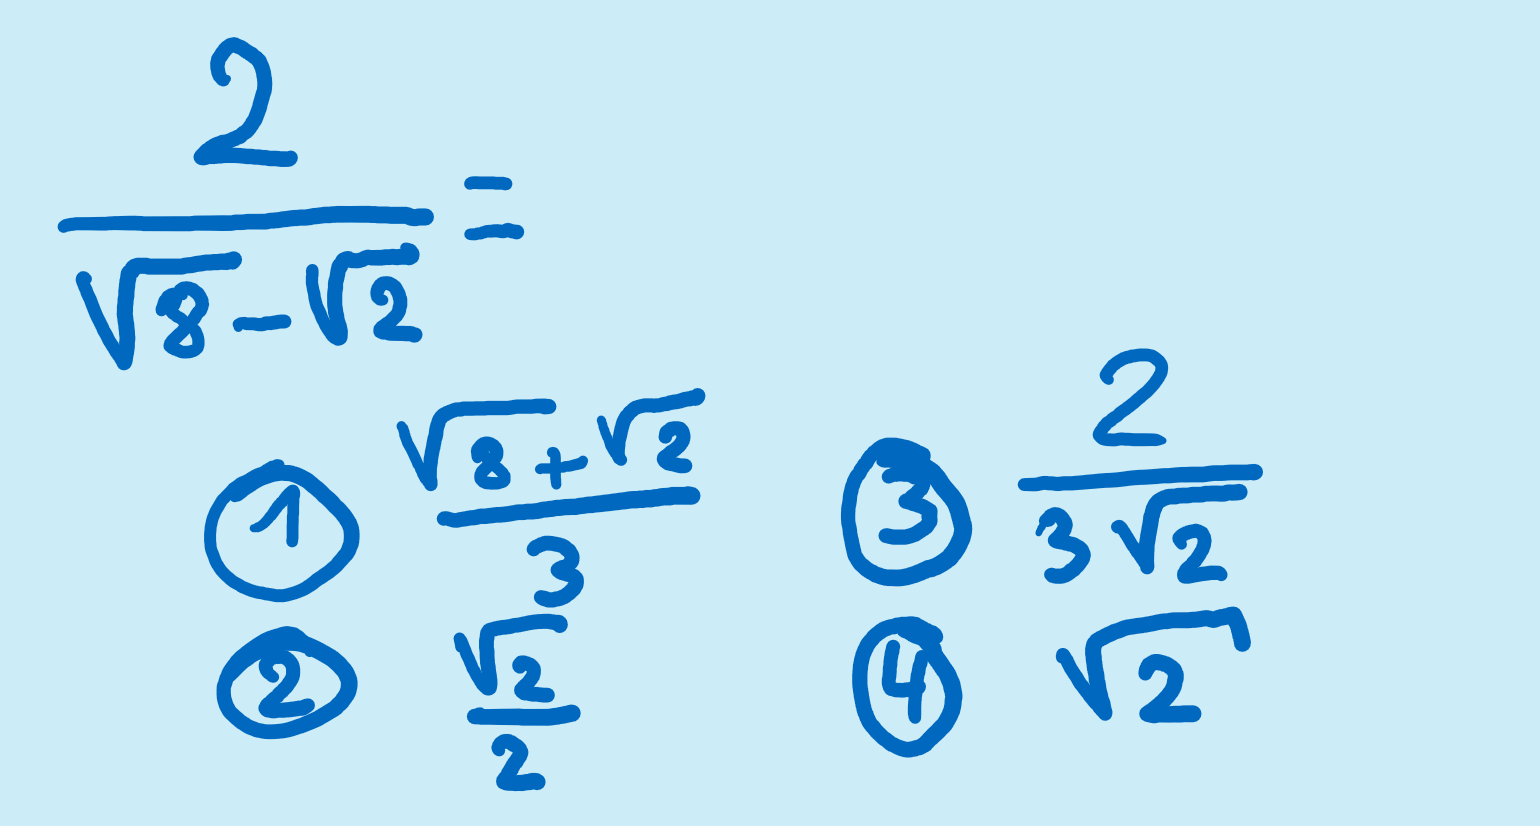 2/(√8-√2) =
① (√8+√2)/3
② √2/2
③ 2/(3√2)
④ √2